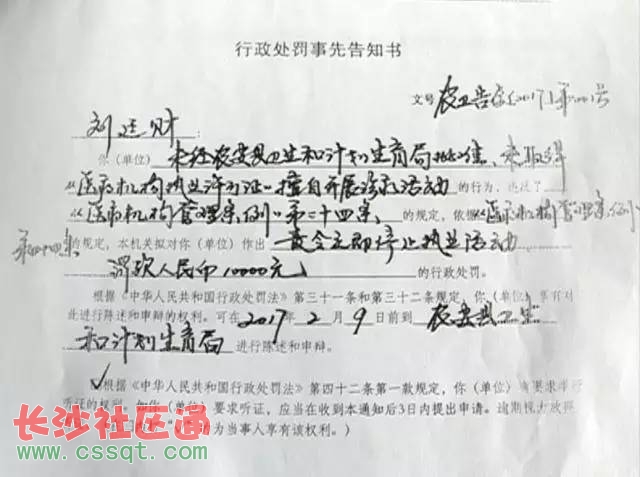 行政处罚事先告知书
文号 农卫告字[2017]第 号
刘廷财：
你（单位）未经农安县卫生和计划生育局批准，未取得
《医疗机构执业许可证》擅自开展诊疗活动 的行为，违反了
《医疗机构管理条例》第二十四条 的规定，依据《医疗机构管理条例》
第四十四条 的规定，本机关拟对你（单位）作出 责令立即停止执业活动
罚款人民币10000元 的行政处罚。
根据《中华人民共和国行政处罚法》第三十一条和第三十二条规定，你（单位）享有对
此进行陈述和申辩的权利。可在 2017 年 2 月 9 日前到 农安县卫生
和计划生育局 进行陈述和申辩。
√根据《中华人民共和国行政处罚法》第四十二条第一款规定，你（单位）有要求举行
听证的权利。如你（单位）要求听证，应当在收到本通知后3日内提出申请。逾期视为放弃
为当事人享有该权利。）
长沙社区通
www.cssqt.com